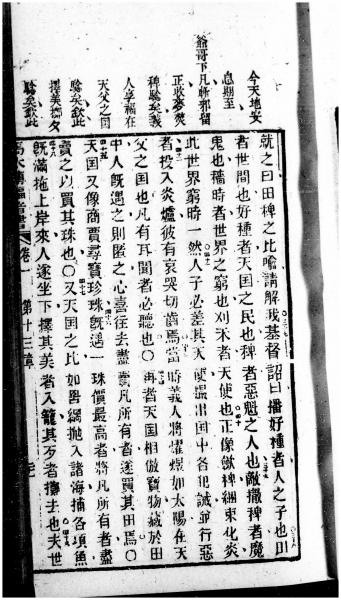 今天地安
息期至
爺哥下凡斬邪留
正收麥焚
稗驗矣義
人享福在
天父之囯
驗矣欽此
擇美擲歹
驗矣欽此
就之曰田稗之比喻請解我基督詔曰播好種者人之子也田
者世間也好種者天囯之民也稗者惡魁之人也敵撒稗者魔
鬼也穡時者世界之窮也刈禾者天使也正像斂稗綑束化炎
此世界窮時一然人子必差其天使逼出囯中各犯誡並行惡
者投入炎爐彼有哀哭切齒焉當時義人將燿如太陽在天
父之囯也凡有耳聞者必聽也〇再者天囯相倣寶物藏於田
中人旣遇之則匿之心喜往去盡賣凡所有者遂買其田焉〇
天囯又像商賈尋寶珍珠旣遇一珠價最高者將凡所有者盡
賣之以買其珠也〇又天囯之比如罟網拋入諸海捕各項魚
旣滿拖上岸來人遂坐下擇其美者入籠其歹者擲去也夫世
馬太傳福音書 卷一 第十三章